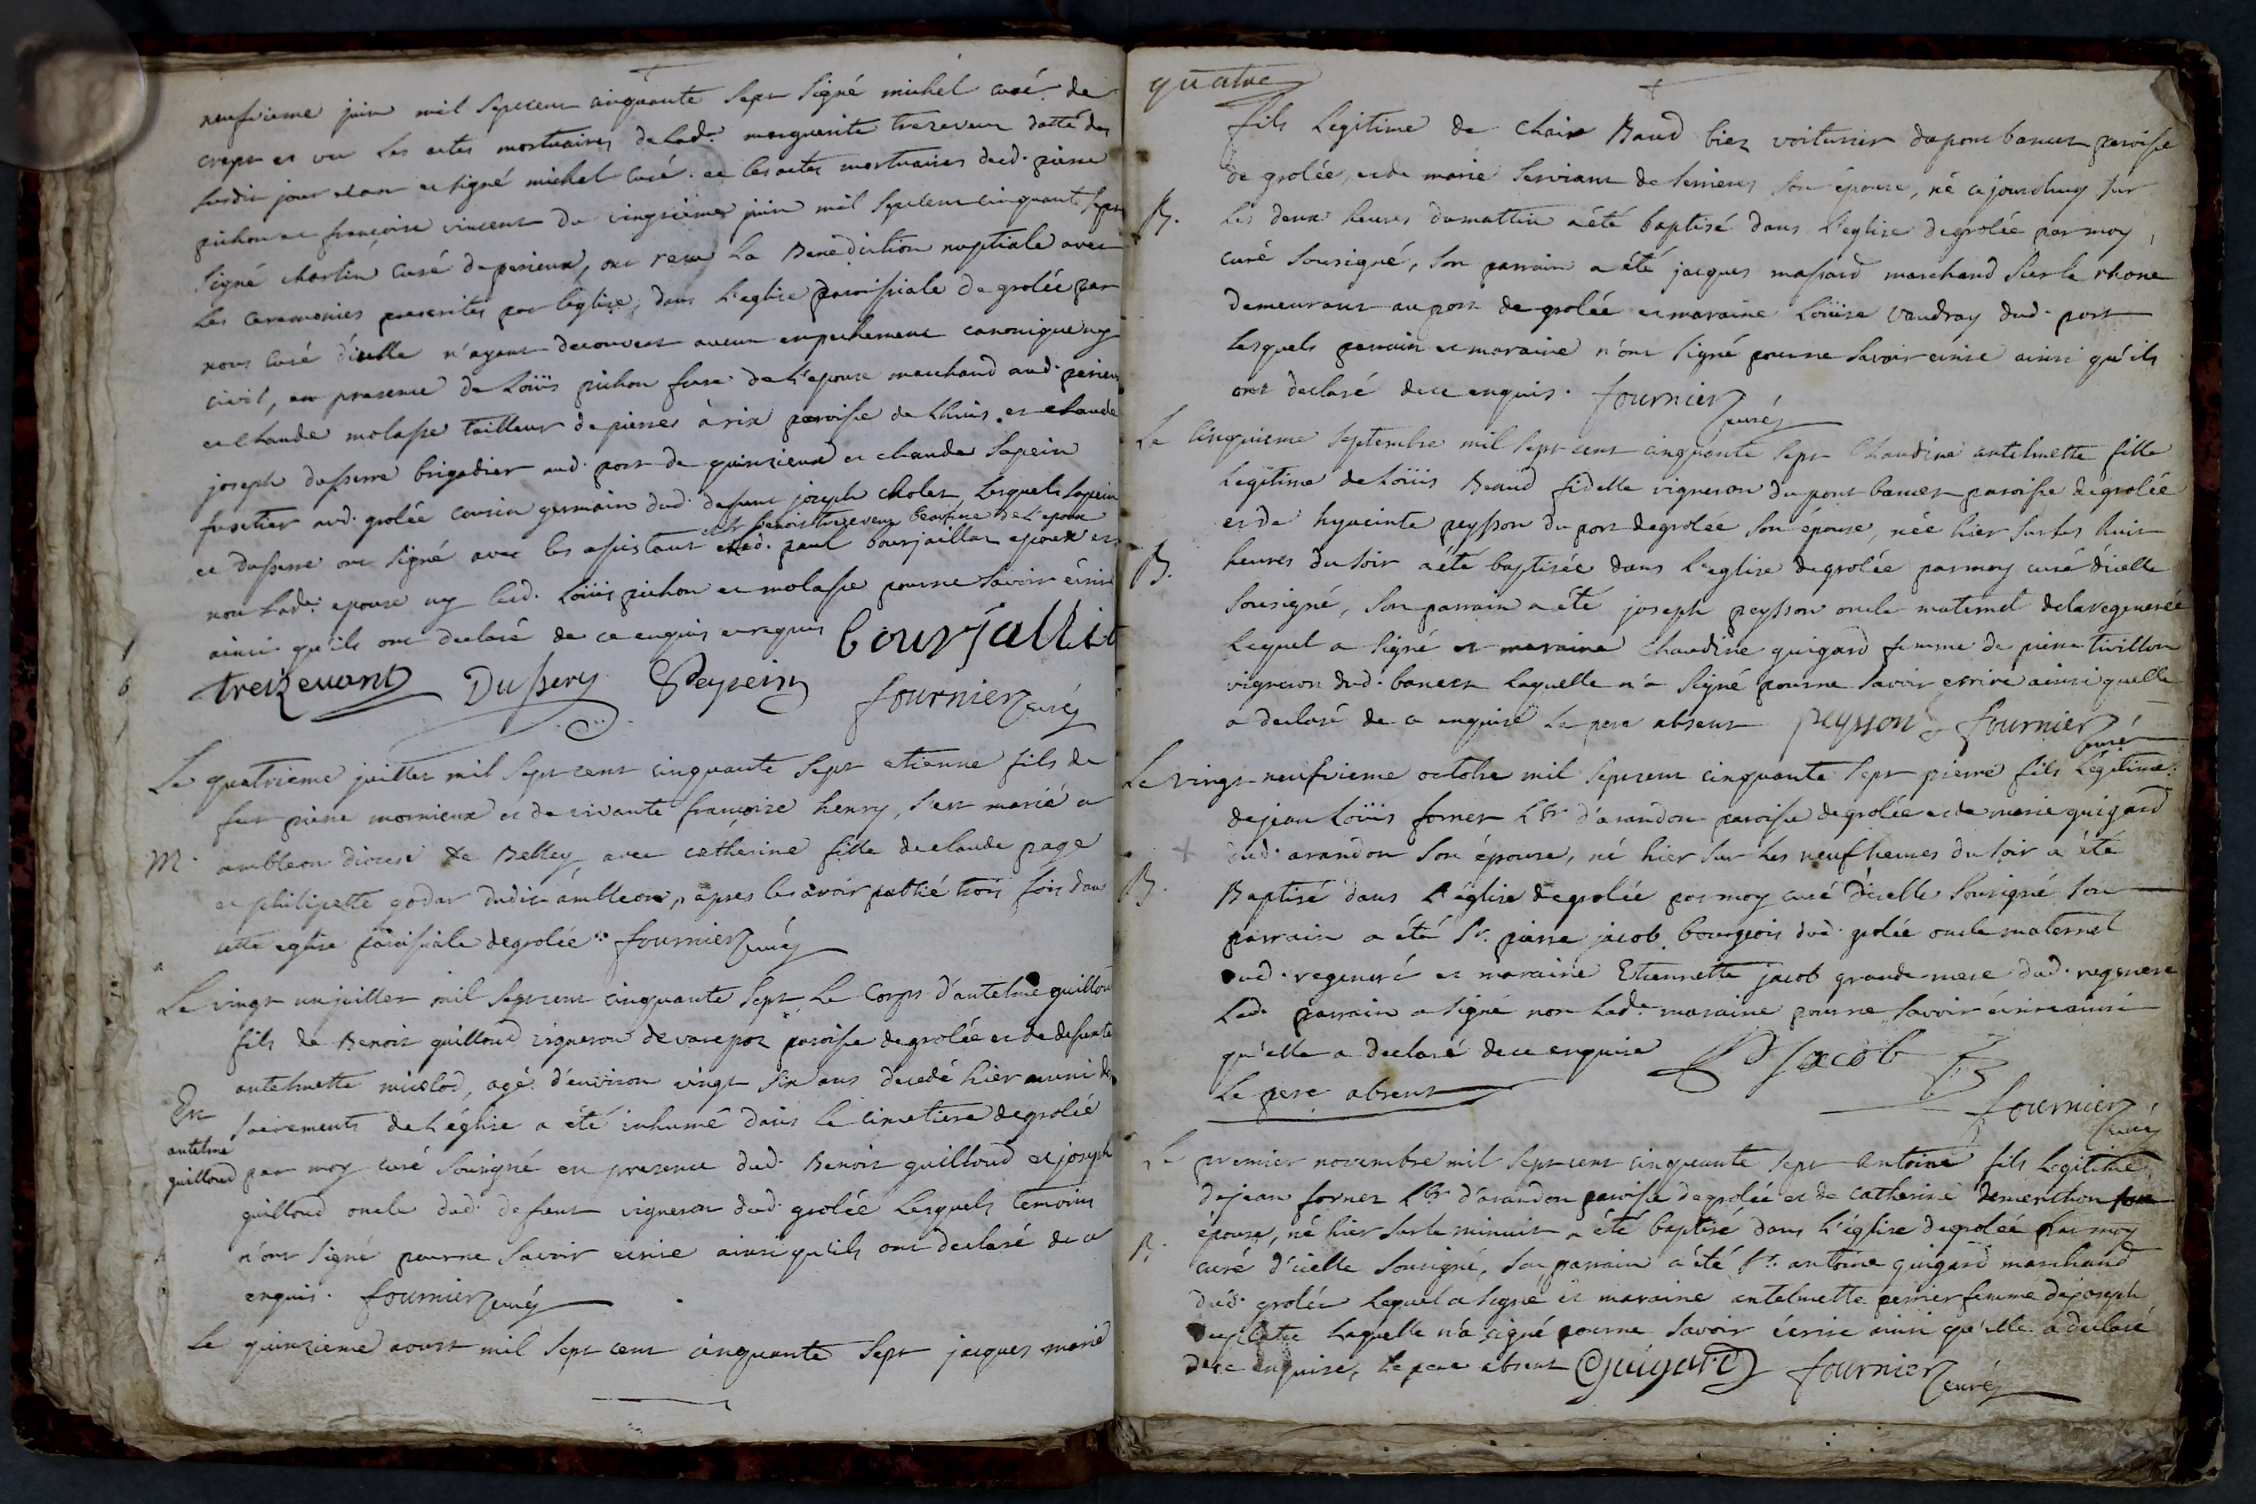 neufvieme juin mil septcent cinquante sept signé michel curé de
creps et vu les actes mortuaires de lad.e marguerite trezevent datté des
susdit jour et an et signé michel curé. et les actes mortuaires dud. pierre
pichon et françoise vincent du vingtiemes juin mil septcent cinquante sept
signé charlin curé de perieux, ont recu la Benediction nuptiale avec
les ceremonies prescrites par l'eglise, dans l'eglise paroissiale de grolée par
nous curé d'icelle n'ayant decouvert aucun empechement canonique ny
civil, en presence de Loüis pichon frere de l'epouse marchand aud. perieux
et claude molasse tailleur de pierres à rix paroisse de Lhuis et claude
joseph dusserre brigadier aud. port de quinzieux et claude Sapein
fustier aud. grolée cousin germain dud. defunt joseph cholet, lesquels Sapein
et benoit trezevent beaufrere de l'epoux
et dusserre ont signé avec les assistant et led. paul bourjaillat epoux et
non lad.e epouse ny led. Loüis pichon et molasse pour ne savoir écrire
ainsi qu'ils ont declaré de ce enquis et requis bourjallit
treizevant Dussery Sepein
fournier curé
Le quatrieme juillet mil sept cent cinquante sept etienne fils de
feu pierre mornieux et de vivante françoise henry, s'est marié a
M. ambleon diocese de Belley, avec cathérine fille de claude page
et philipette godar dudit ambleon, apres les avoir publié trois fois dans
cette eglise paroissiale de grolée. fournier curé
Le vingt un juillet mil septcent cinquante sept le corps d'antelme guilloud
fils de Benoit guilloud vigneron de varepoz paroisse de grolée et de defunte
antelmette micolod, agé d'environ vingt six ans decedé hier muni des
En
antelme
guilloud
sacrements de l'église a été inhumé dans le cimetiere de grolée
par moy curé sousigné en presence dud. Benoit guilloud et joseph
guilloud oncle dud. defunt vigneron dud. grolée lesquels temoins
n'ont signé pour ne savoir ecrire ainsi qu'ils ont declaré de ce
enquis. fournier curé
Le quinzieme aoust mil sept cent cinquante sept jacques marie
quatre
fils legitime de claire Baud biez voiturier du pont bancet paroisse
de grolée, et de marie serviant de serrieres son épouse, né ce jourdhuy sur
B. les deux heures du mattin a été baptisé dans l'eglise de grolée par moy
curé sousigné, son parrain a été jacques massard marchand sur le rhone
demeurant au port de grolée et maraine Loüise vaudray dud. port
lesquels parrain et maraine n'ont signé pour ne savoir ecrire ainsi qu'ils
ont declaré de ce enquis. fournier curé
Le cinquieme septembre mil sept cent cinquante sept claudine antelmette fille
legitime de Loüis Beaud fidelle vigneron du pont bancet paroisse de grolée
et de hyacinte peysson du port de grolée son épouse, née hier sur les huit
B. heures du soir a été baptisée dans l'eglise de grolée par moy curé d'icelle
sousigné, son parrain a été joseph peysson oncle maternel de la regenerée
lequel a signé et maraine claudine guigard femme de pierre tivillon
vigneron dud. bancet laquelle n'a signé pour ne savoir ecrire ainsi quelle
a declaré de ce enquise le pere absent peysson fournier curé
Le vingt neufvieme octobre mil septcent cinquante sept pierre fils legitime
de jean Loüis fornet Lbr d'arandon paroisse de grolée et de marie guigard
dud. arandon son épouse, né hier sur les neuf heures du soir a été
B. Baptisé dans l'église de grolée par moy curé d'icelle sousigné son
parrain a été Sr. pierre jacob bourgeois dud. grolée oncle maternel
dud. regeneré et maraine Etiennette jacob grande mere dud. regeneré
led. parrain a signé non lad.e maraine pour ne savoir écrire ainsi
qu'elle a declaré de ce enquise P Jacob
Le pere absent
fournier curé
Le premier novembre mil sept cent cinquante sept antoine fils legitime
de jean fornet Lbr d'arandon paroisse de grolée et de catherine demerthon son
épouse, né hier sur le minuit a été baptisé dans l'église de grolée par moy
B. curé d'icelle sousigné, son parrain a été Sr. antoine guigard marchand
dud. grolée lequel a signé et maraine antelmette perrier femme de joseph
duplatre laquelle n'a signé pour ne savoir écrire ainsi qu'elle a declaré
de ce enquise, le pere absent Guigard fournier curé